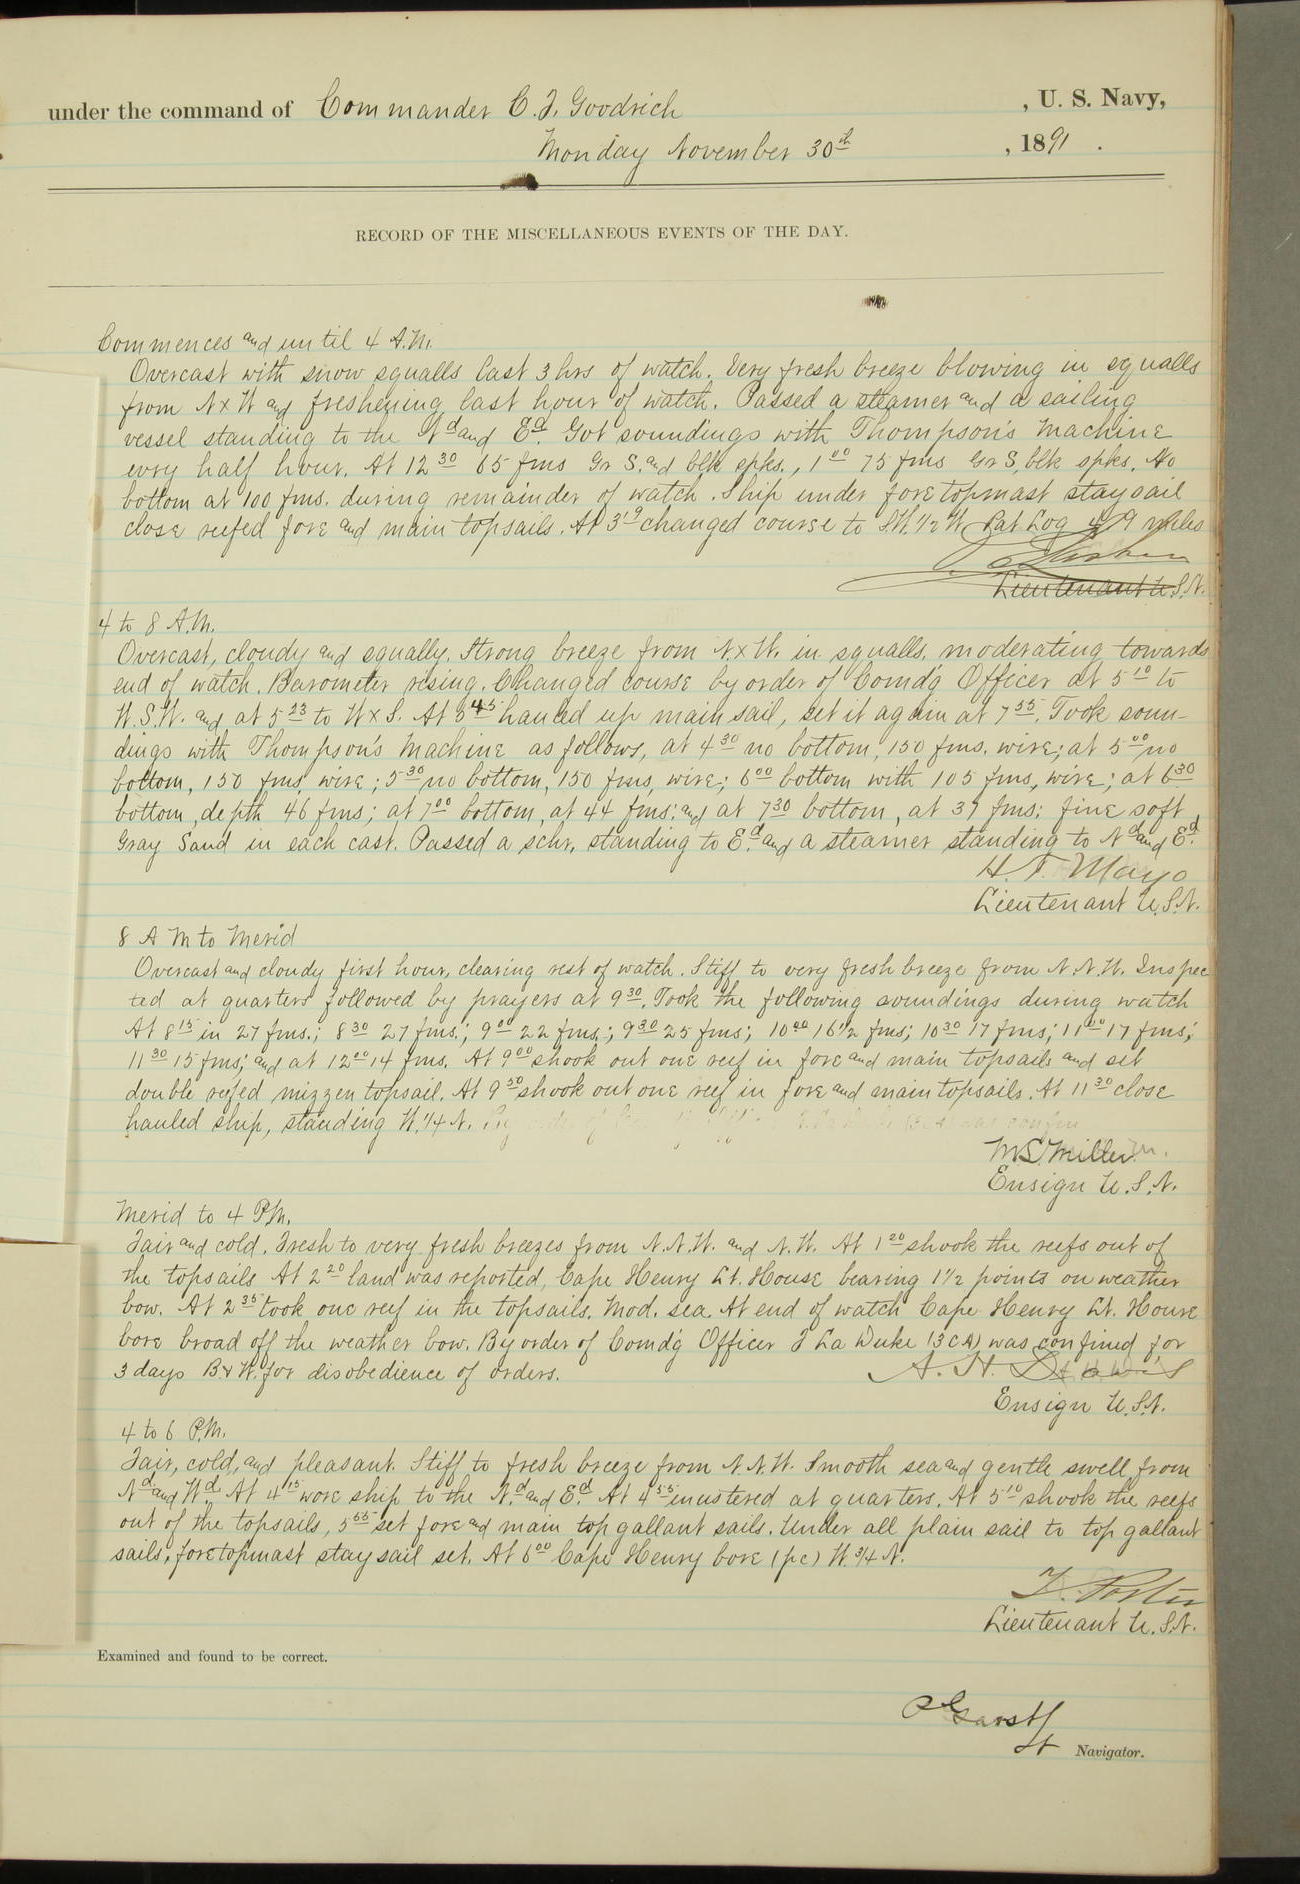 under the command of Commander C. F. Goodrich , U. S. Navy,
Monday November 30th , 1891 .
RECORD OF THE MISCELLANEOUS EVENTS OF THE DAY.
Commences and until 4 A.M.
Overcast with snow squalls last 3 hrs of watch. Very fresh breeze blowing in squalls
from N x W and freshening last hour of watch. Passed a steamer and a sailing
vessel standing to the Nd and Ed. Got soundings with Thompson's Machine
evry half hour. At 12 30 65 fms Gr S. and blk spks., 1 00 75 fms Gr S, blk spks. No
bottom at 100 fms. during remainder of watch. Ship under foretopmast staysail
close reefed fore and main topsails. At 3 changed course to S.W. 1/2 W. Pat Log miles
Lieutenant U.S.N.
4 to 8 A.M.
Overcast, cloudy and squally. Strong breeze from N x W. in squalls, moderating towards
end of watch. Barometer rising. Changed course by order of Comd'g Officer at 5 10 to
W.S.W. and at 5 23 to W x S. At 5 45 hauled up mainsail, set it again at 7 55. Took soun-
dings with Thompson's Machine as follows, at 4 30 no bottom, 150 fms. wire; at 5 00 no
bottom, 150 fms, wire; 5 30 no bottom, 150 fms, wire; 6 00 bottom with 105 fms, wire; at 6 30
bottom, depth 46 fms; at 7 00 bottom, at 44 fms; and at 7 30 bottom, at 37 fms: fine soft
Gray Sand in each cast. Passed a schr. standing to Ed. and a steamer standing to Nd and Ed.
H. T. Mayo
Lieutenant U.S.N.
8 A M to Merid
Overcast and cloudy first hour, clearing rest of watch. Stiff to very fresh breeze from N.N.W. Inspec
ted at quarters followed by prayers at 9 30. Took the following soundings during watch
At 8 15 in 27 fms.; 8 30 27 fms.; 9 00 22 fms.; 9 30 25 fms; 10 00 16 1/2 fms; 10 30 17 fms; 11 00 17 fms;
11 30 15 fms; and at 12 00 14 fms. At 9 00 shook out one reef in fore and main topsails and set
double reefed mizzen topsail. At 9 50 shook out one reef in fore and main topsails. At 11 30 close
hauled ship, standing W. 1/4 N.
M S Miller
Ensign U.S.N.
Merid to 4 P.M.
Fair and cold. Fresh to very fresh breezes from N.N.W. and N.W. At 1 20 shook the reefs out of
the topsails At 2 20 land was reported, Cape Henry Lt. House bearing 1 1/2 points on weather
bow. At 2 35 took one reef in the topsails. Mod. sea. At end of watch Cape Henry Lt. House
bore broad off the weather bow. By order of Comd'g Officer F La Duke (3 C A) was confined for
3 days B & W. for disobedience of orders.
A. H.
Ensign U.S.N.
4 to 6 P.M.
Fair, cold, and pleasant. Stiff to fresh breeze from N.N.W. Smooth sea and gentle swell from
Nd and Wd. At 4 15 wore ship to the Nd and Ed At 4 55 mustered at quarters. At 5 10 shook the reefs
out of the topsails, 5 55 set fore and main top gallant sails. Under all plain sail to top gallant
sails, foretopmast staysail set. At 6 00 Cape Henry bore (pc) W. 3/4 N.
T. Porter
Lieutenant U.S.N.
Examined and found to be correct.
P Garst
Lt Navigator.